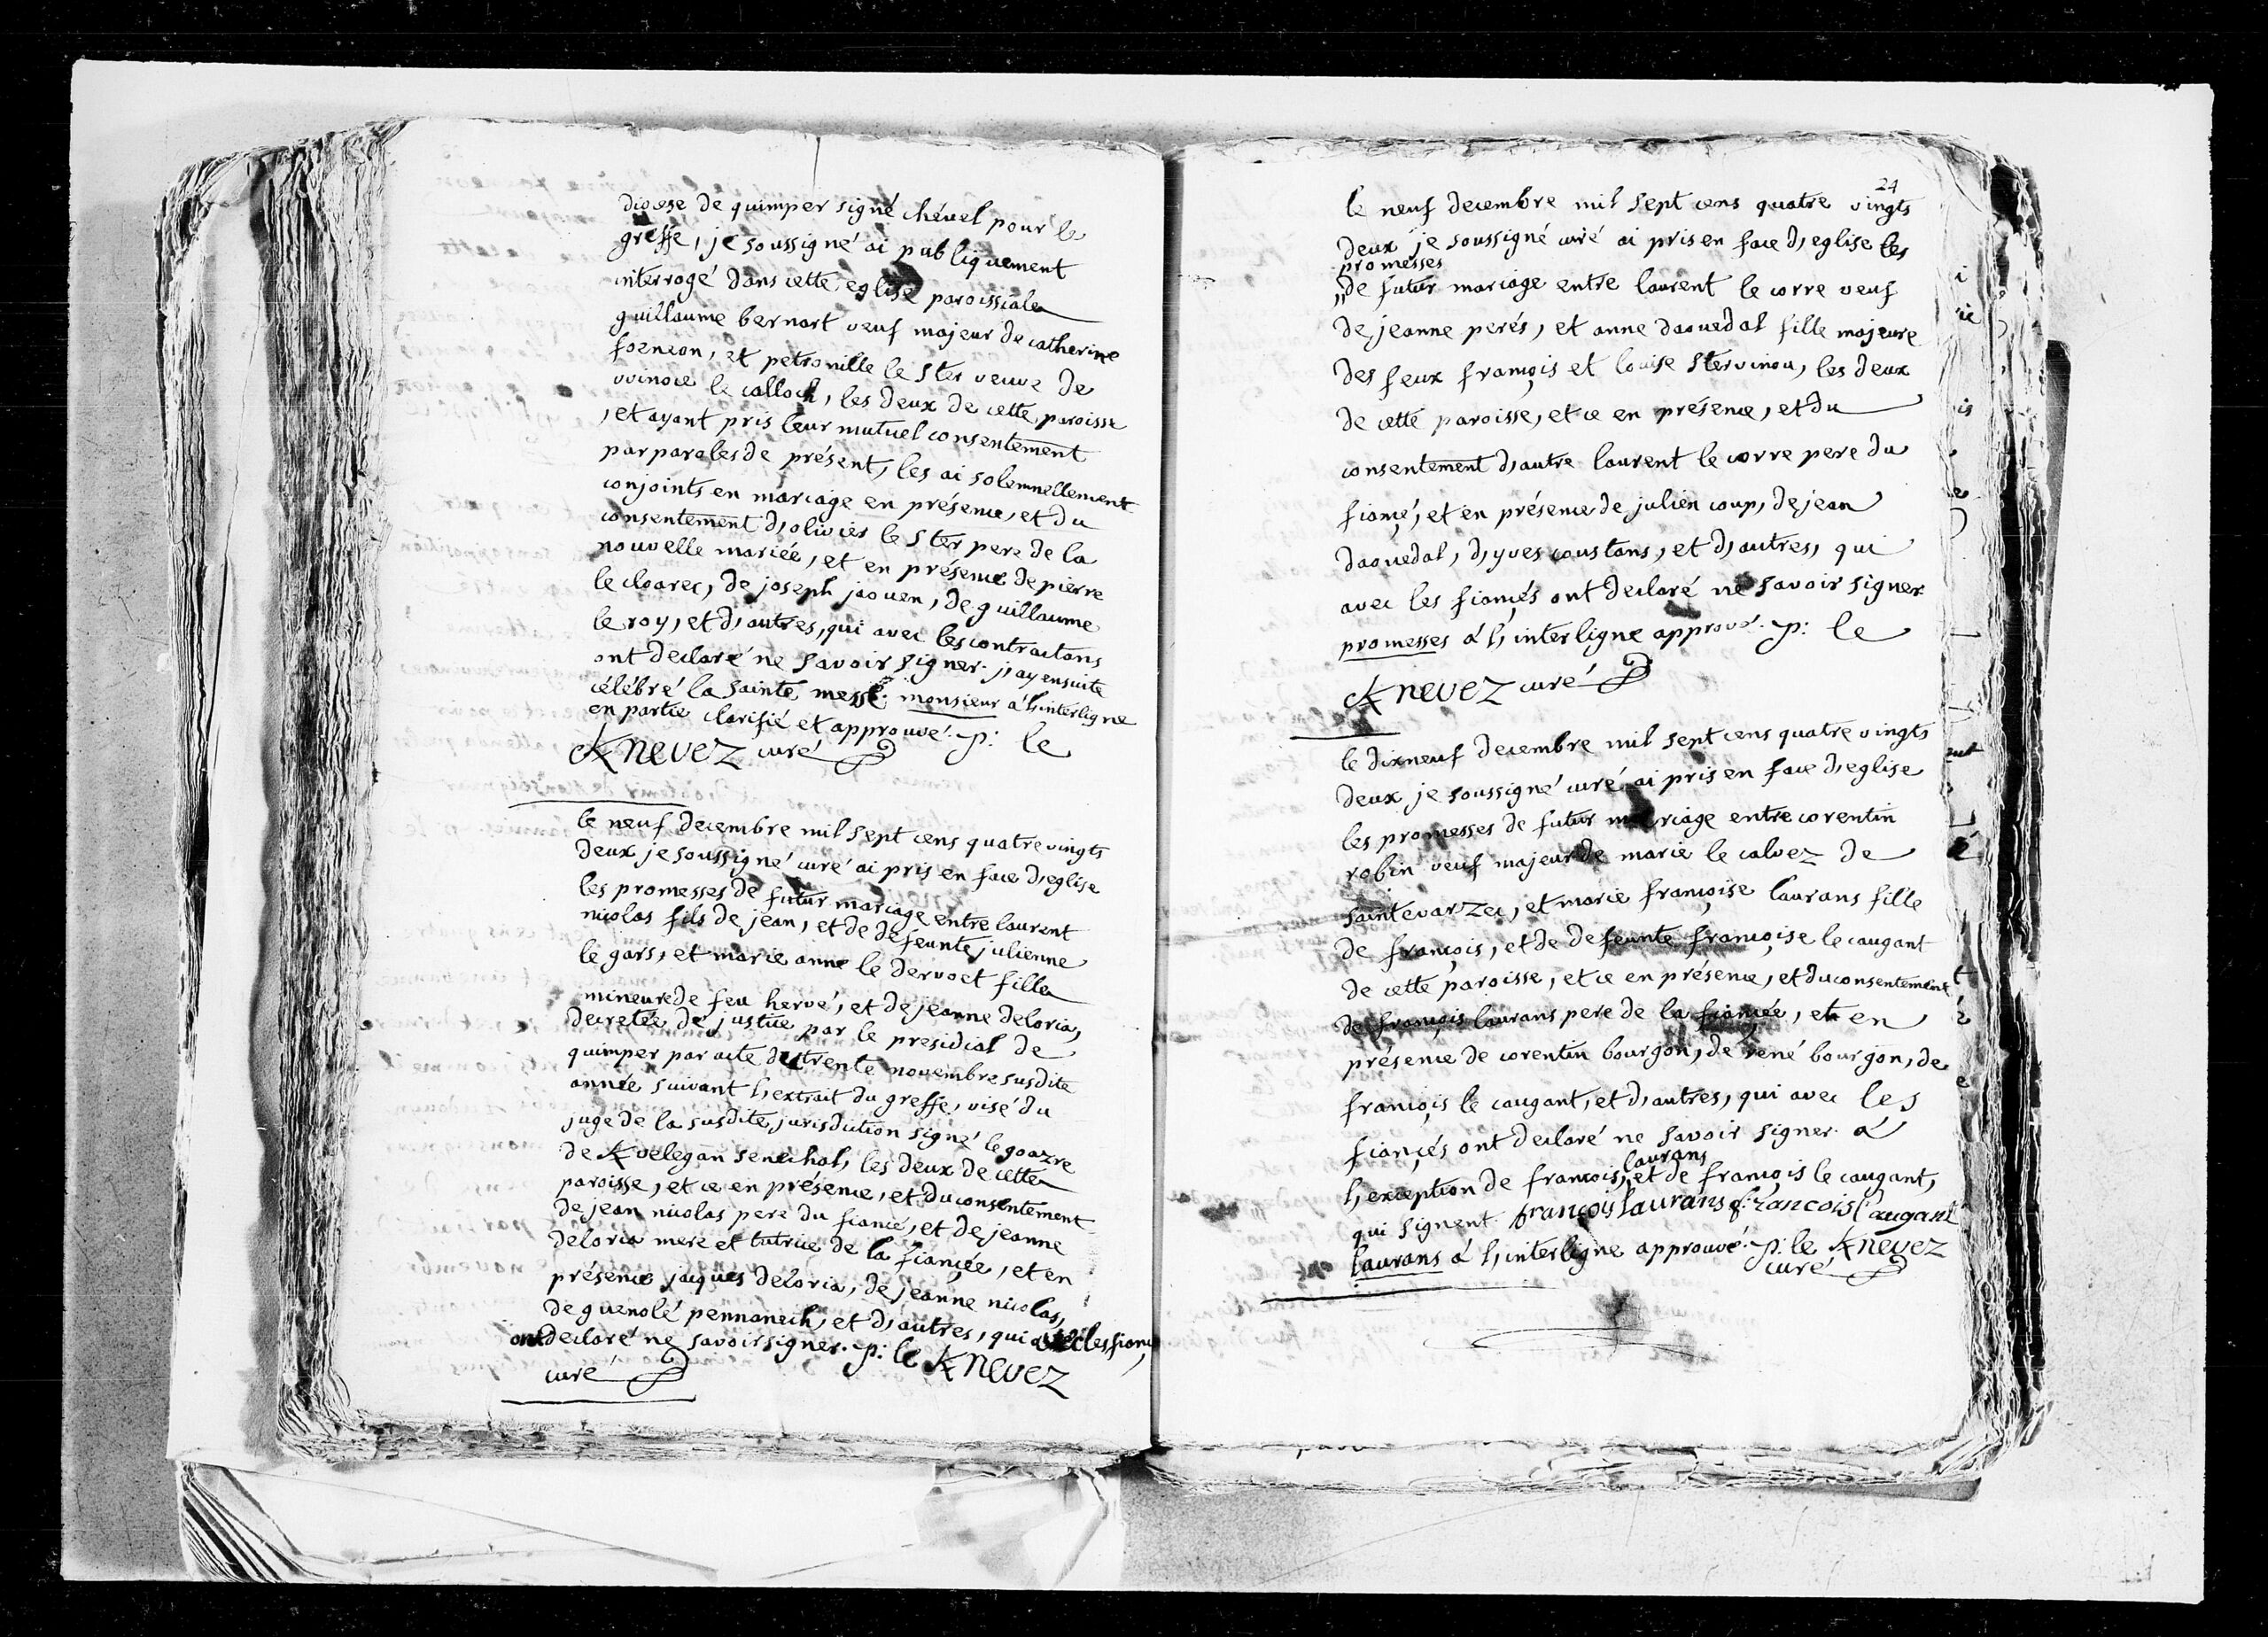 diocese de quimper signé chéuel pour le
greffe, je soussigné ai publiquement
interrogé dans cette eglise paroissiale
guillaume bernart veuf majeur de catherine
foeneon, et petronille le ster veuve de
vvinoce le calloch, les deux de cette paroisse
, et ayant pris leur mutuel consentement
par paroles de présent, les ai solemnellement
conjoints en mariage en présence, et du
consentement d'olivier le ster pere de la
nouvelle mariée, et en présence de pierre
le cloarec, de joseph jaouen, de guillaume
le roy, et d'autres, qui avec les contractans
ont declaré ne savoir signer. j'ay ensuite
célébré la sainte messe. monsieur à l'interligne
en partie clarifié et approuvé. p: le
Knevez curé
le neuf decembre mil sept cens quatre vingts
deux je soussigné curé ai pris en face d'eglise
les promesses de futur mariage entre laurent
nicolas fils de jean, et de defeunte julienne
le gars, et marie anne le dervoet fille
mineure de feu hervé, et de jeanne deloria,
decretée de justice par le presidial de
quimper par acte du trente novembre susdite
année suivant l'extrait du greffe, visé du
juge de la susdite jurisdiction signé le goazre
de Kvelegan senechal, les deux de cette
paroisse, et ce en présence, et du consentement
de jean nicolas pere du fiancé, et de jeanne
deloria mere et tutrice de la fiancée, et en
présence jacques deloria, de jeanne nicolas,
de guenolé pennanech, et d'autres, qui avec les fiancés
ont declaré ne savoir signer. p: le Knevez
curé
24
le neuf decembre mil sept cens quatre vingts
deux je soussigné curé ai pris en face d'eglise les
promesses
"de futur mariage entre laurent le corre veuf
de jeanne perés, et anne daouedal fille majeure
des feux françois et louise stervinou, les deux
de cette paroisse, et ce en présence, et du
consentement d'autre laurent le corre pere du
fiancé, et en présence de julien coup, de jean
daouedal, d'yves coustans, et d'autres, qui
avec les fiancés ont declaré ne savoir signer
promesses à l'interligne approuvé. p: le
Knevez curé
le dixneuf decembre mil sept cens quatre vingts
deux je soussigné curé ai pris en face d'eglise
les promesses de futur mariage entre corentin
robin veuf majeur de marie le calvez de
saintevarzec, et marie françoise laurans fille
de françois, et de defeunte françoise le caugant
de cette paroisse, et ce en présence, et du consentement
de françois laurans pere de la fiancée, et en
présence de corentin bourgon, de rené bourgon, de
françois le caugant, et d'autres, qui avec les
fiancés ont declaré ne savoir signer à
laurans
l'exception de françois, et de françois le caugant,
qui signent. françois laurans francois Caugant
laurans à l'interligne approuvé. p: le Knevez
curé